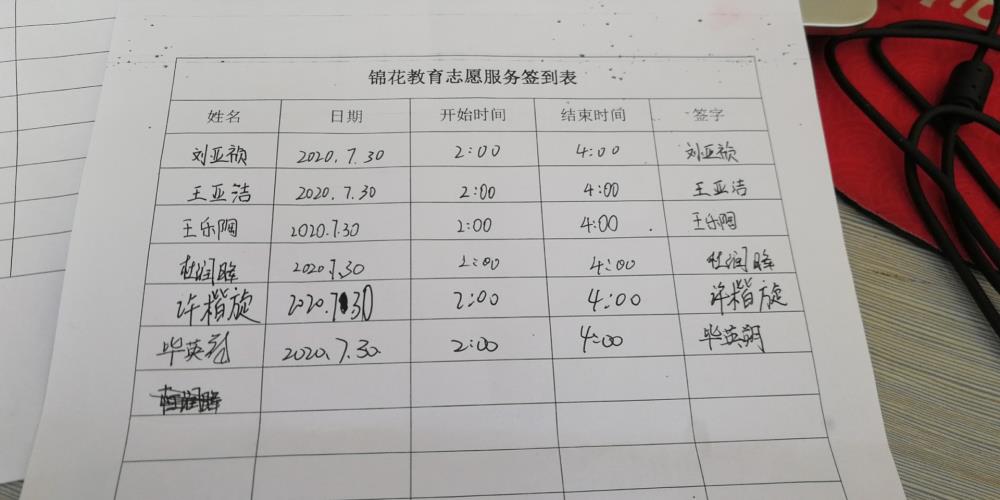 锦花教育志愿服务签到表
姓名 日期 开始时间 结束时间 签字
刘亚祯 2020.7.30 2:00 4:00 刘亚祯
王亚洁 2020.7.30 2:00 4:00 王亚洁
王乐陶 2020.7.30 2:00 4:00 王乐陶
杜润晖 2020.7.30 2:00 4:00 杜润晖
许楷旋 2020.7.30 2:00 4:00 许楷旋
毕英 2020.7.30. 2:00 4:00 毕英朔